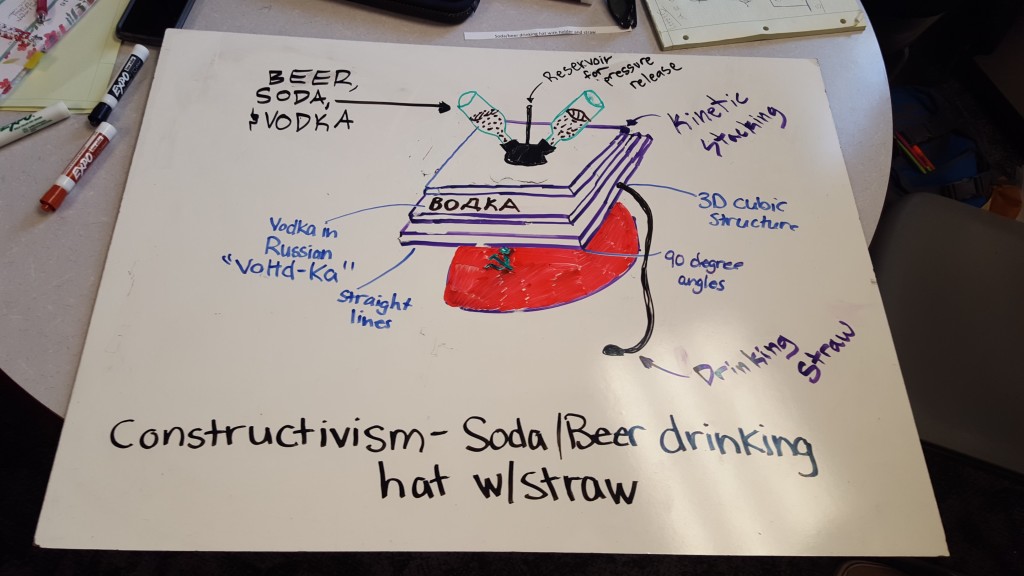 Soda/beer drinking hat with holder and straw
BEER,
SODA,
& VODKA
Reservoir
for
pressure
release
Kinetic
stacking
ВОДКА
3D cubic
structure
Vodka in
Russian
"VoHd-Ka"
90 degree
angles
straight
lines
Drinking
straw
Constructivism - Soda/Beer drinking
hat w/straw
EXPO
EXPO